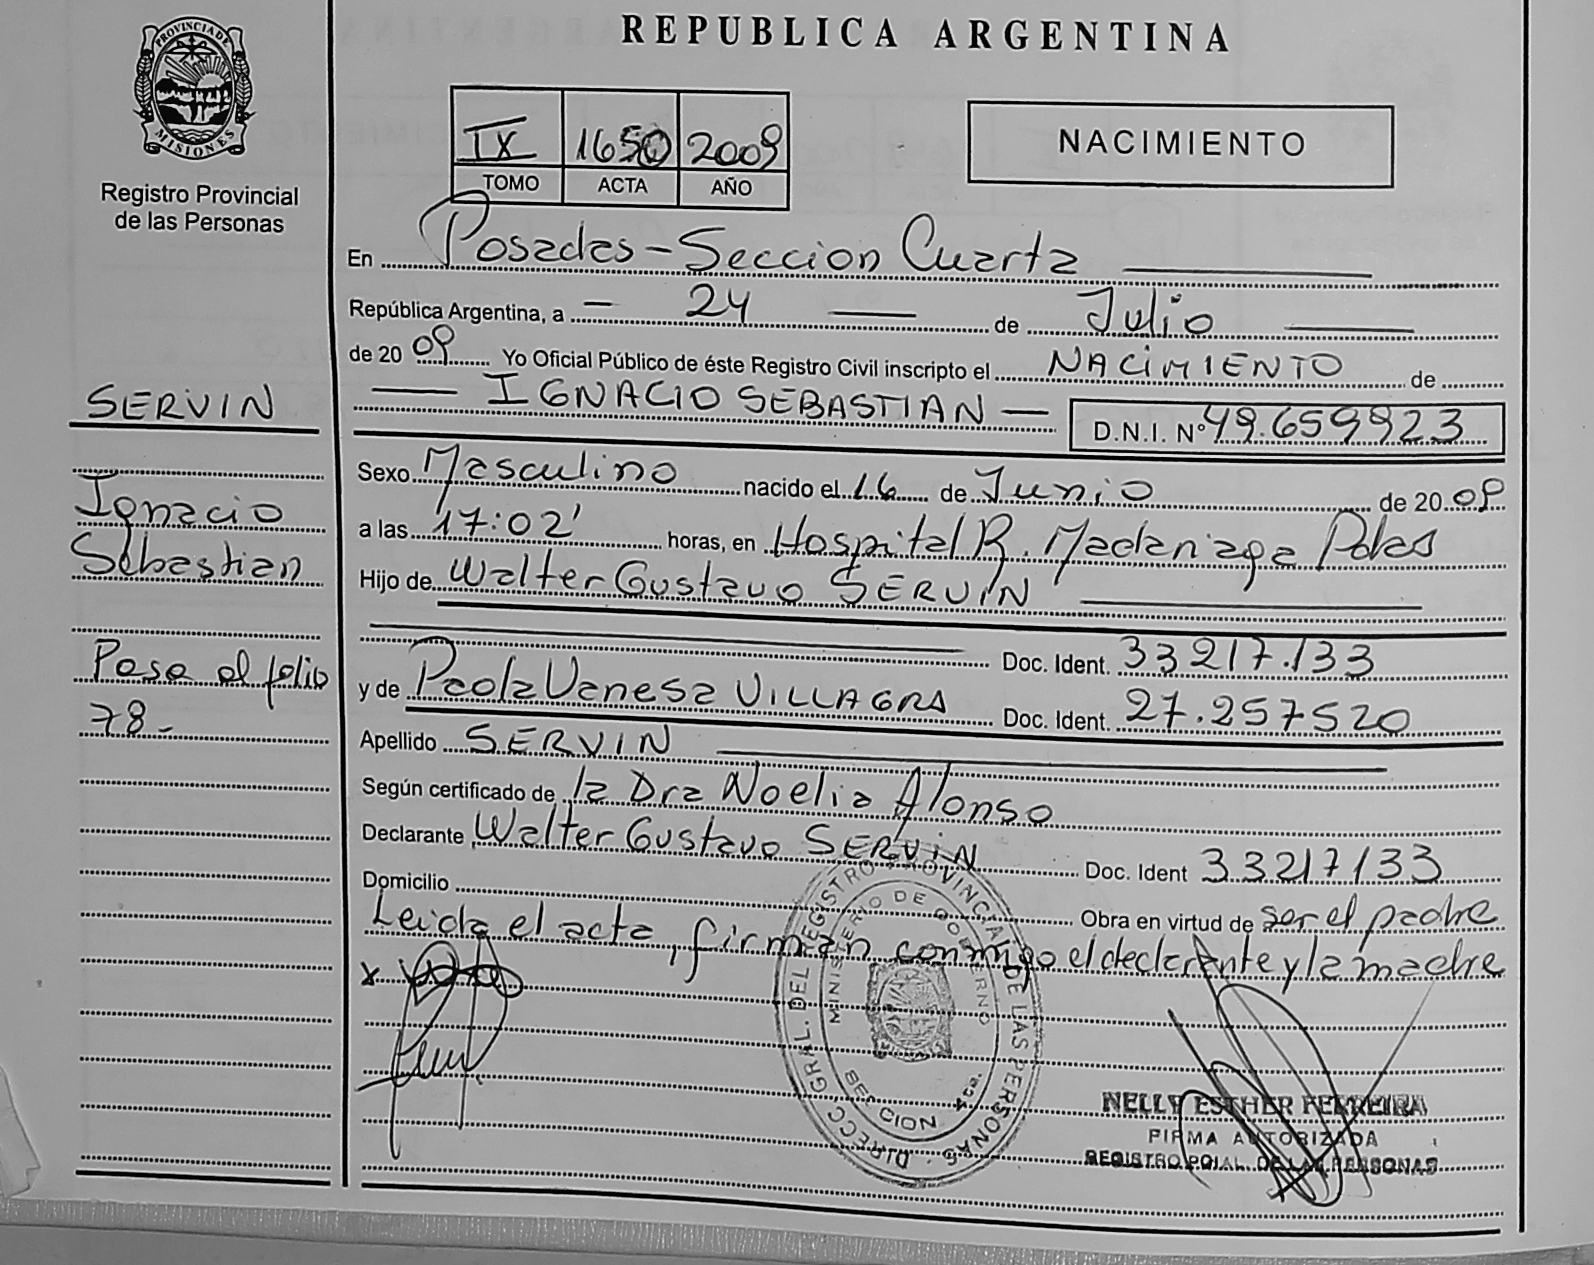 PROVINCIA DE
MISIONES
Registro Provincial
de las Personas
REPUBLICA ARGENTINA
IX 1650 2009
TOMO ACTA AÑO
NACIMIENTO
En Posadas - Seccion Cuarta
República Argentina, a - 24 de Julio
de 20 09 Yo Oficial Público de éste Registro Civil inscripto el NACIMIENTO de
IGNACIO SEBASTIAN — D.N.I. Nº 49.659923
Sexo Masculino nacido el 16 de Junio de 20 09
a las 17:02' horas, en Hospital R. Madariaga Pdas
Hijo de Walter Gustavo SERVIN
Doc. Ident. 33217.133
y de Paola Vanesa VILLAGRA Doc. Ident. 27.257520
Apellido SERVIN
Según certificado de la Dra Noelia Alonso
Declarante Walter Gustavo SERVIN Doc. Ident 33217133
Domicilio Obra en virtud de ser el padre
Leida el acta, firman conmigo el declarante y la madre
x
SERVIN
Ignacio
Sebastian
Pasa al folio
78-
DIRECC. GRAL. DEL REGISTRO PROVINCIAL DE LAS PERSONAS
MINISTERIO DE GOBIERNO
SECCION 4ta.
NELLY ESTHER FERREIRA
FIRMA AUTORIZADA
REGISTRO PCIAL. DE LAS PERSONAS